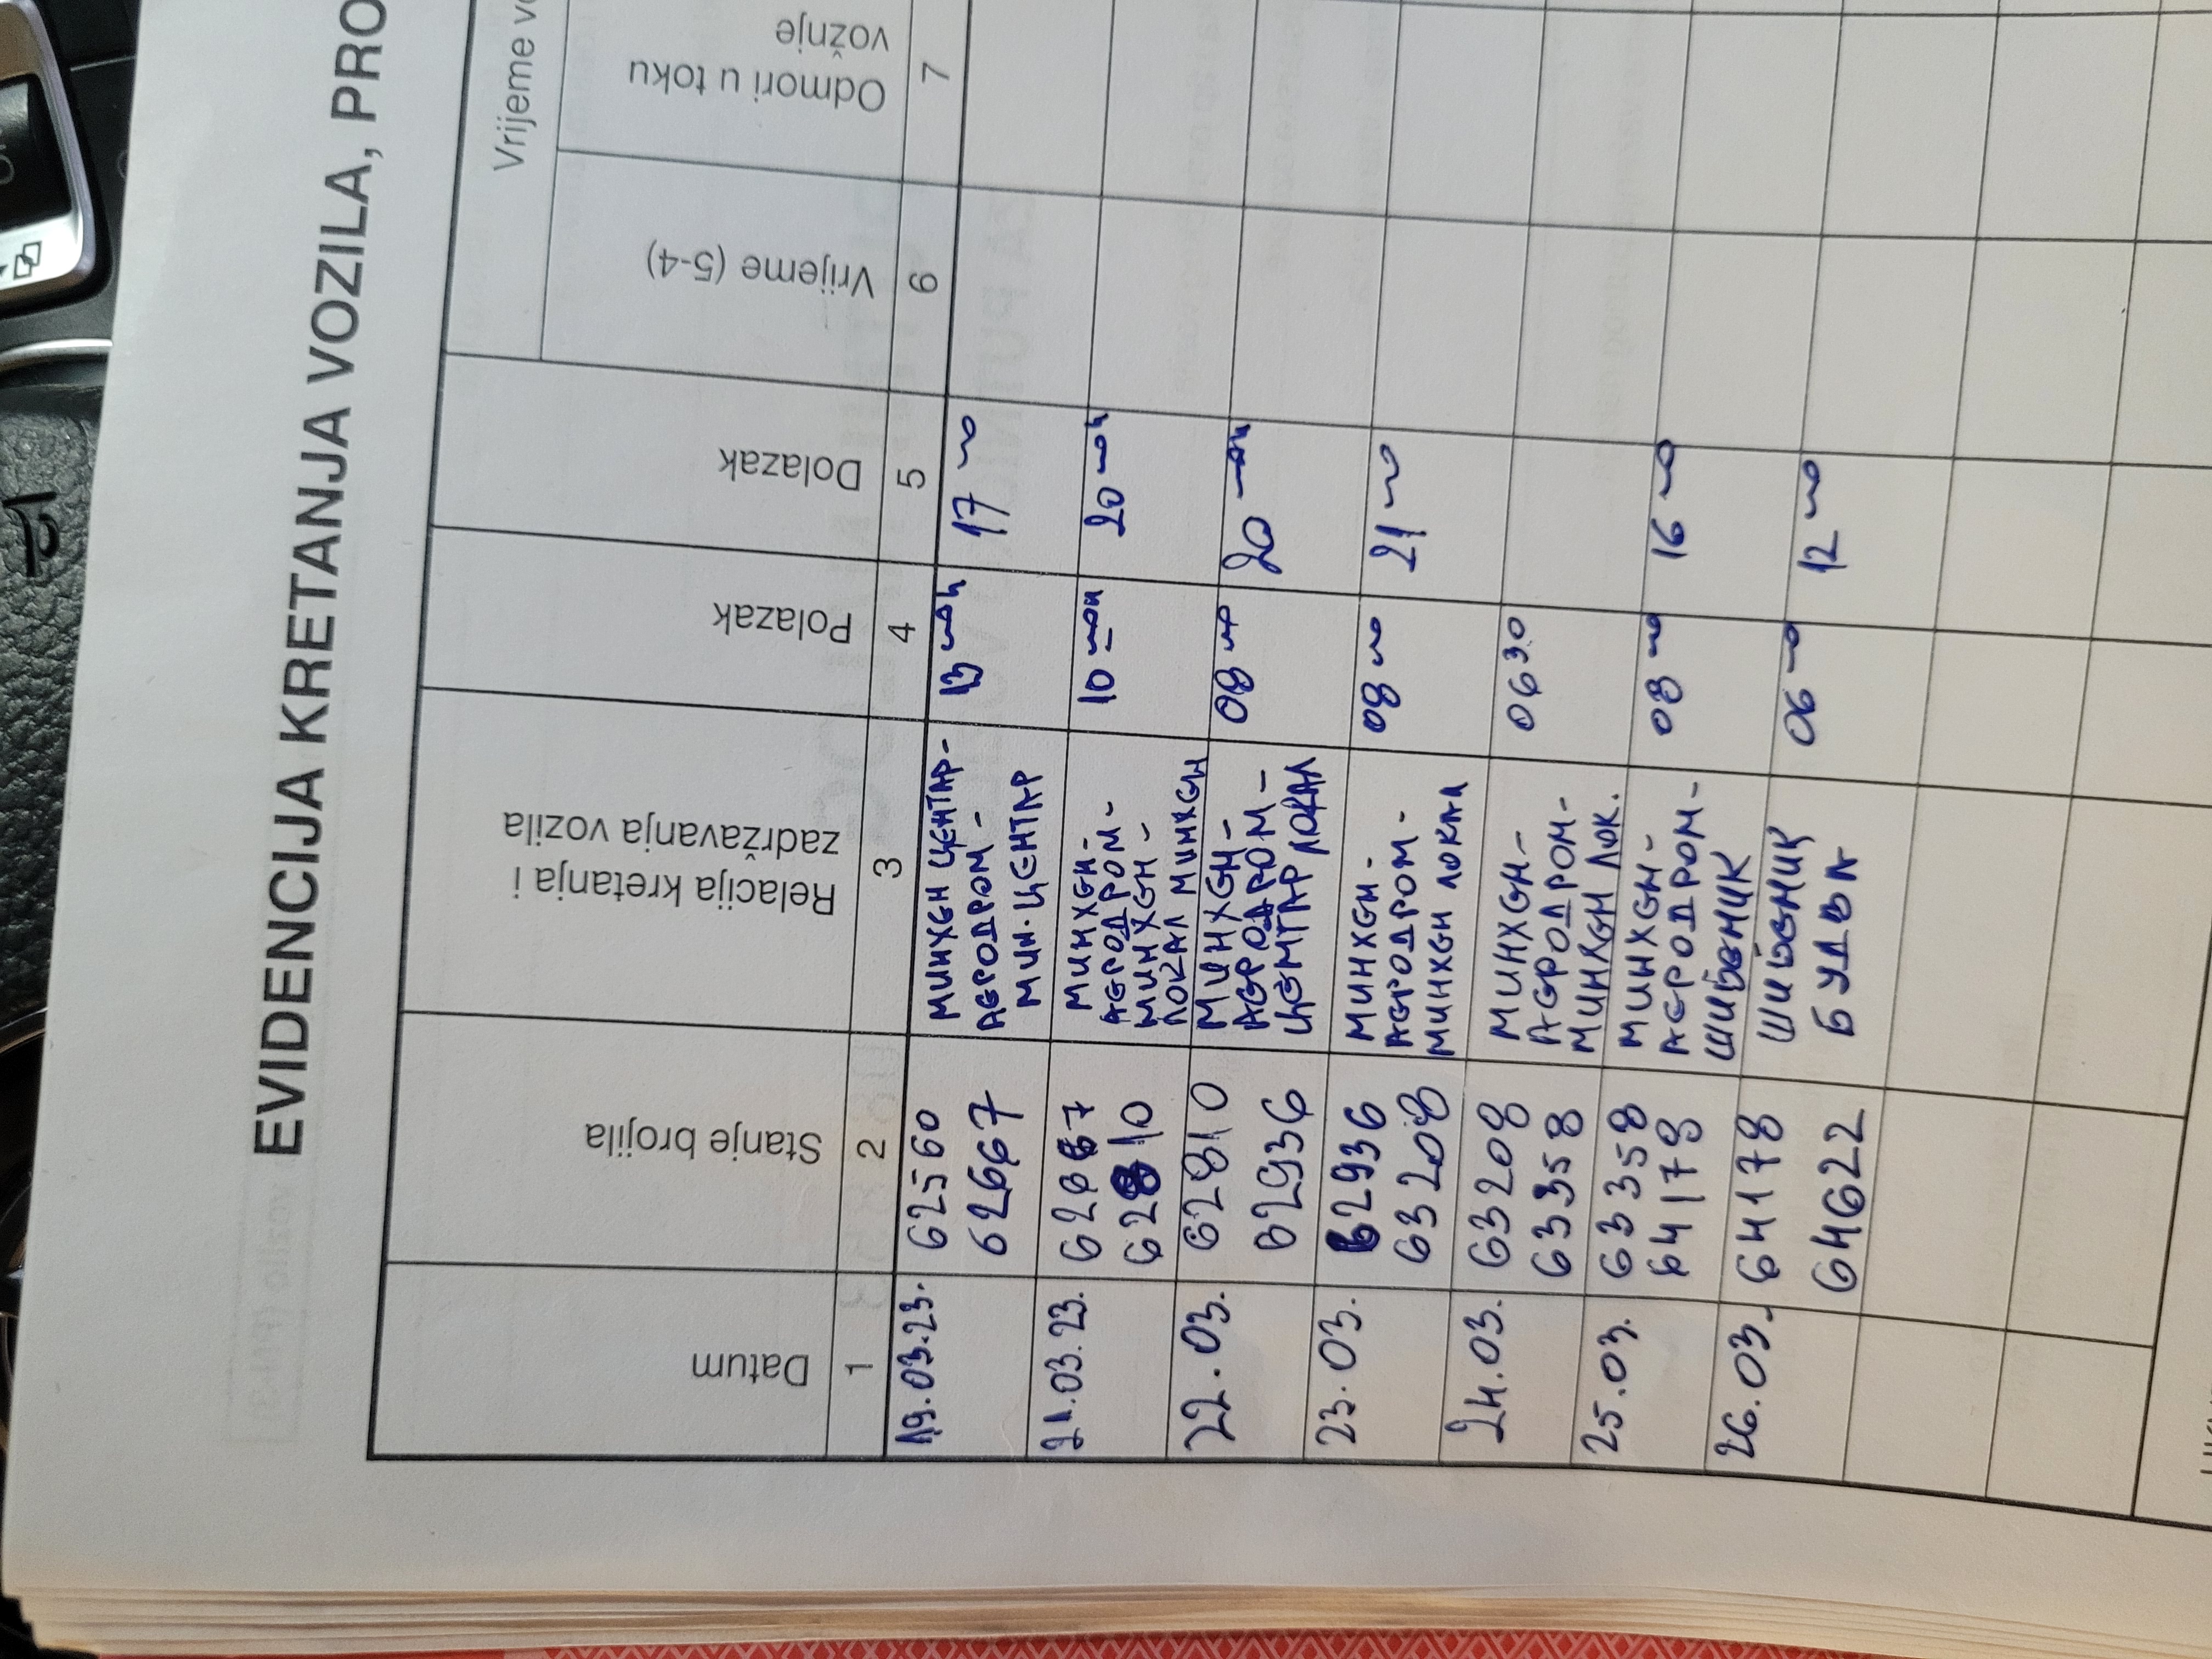 EVIDENCIJA KRETANJA VOZILA, PRO
Datum
Stanje brojila
Relacija kretanja i
zadržavanja vozila
Polazak
Dolazak
Vrijeme
Vrijeme (5-4)
Odmori u toku
vožnje
1 2 3 4 5 6 7
19.03.23. 62560 МИНХЕН ЦЕНТАР- 13 00 h 17 00
62667 АЕРОДРОМ-
МИН. ЦЕНТАР
21.03.23. 62667 МИНХЕН- 10 00 h 20 00 h
62810 АЕРОДРОМ-
МИНХЕН-
ЛОКАЛ МИНХЕН
22.03. 62810 МИНХЕН- 08 00 20 00 h
62936 АЕРОДРОМ-
ЦЕНТАР ЛОКАЛ
23.03. 62936 МИНХЕН- 08 00 21 00
63208 АЕРОДРОМ-
МИНХЕН ЛОКАЛ
24.03. 63208 МИНХЕН- 0630
63358 АЕРОДРОМ-
МИНХЕН ЛОК.
25.03. 63358 МИНХЕН- 08 00 16 00
64178 АЕРОДРОМ-
ШИБЕНИК
26.03. 64178 ШИБЕНИК 06 00 12 00
64622 БУДВА